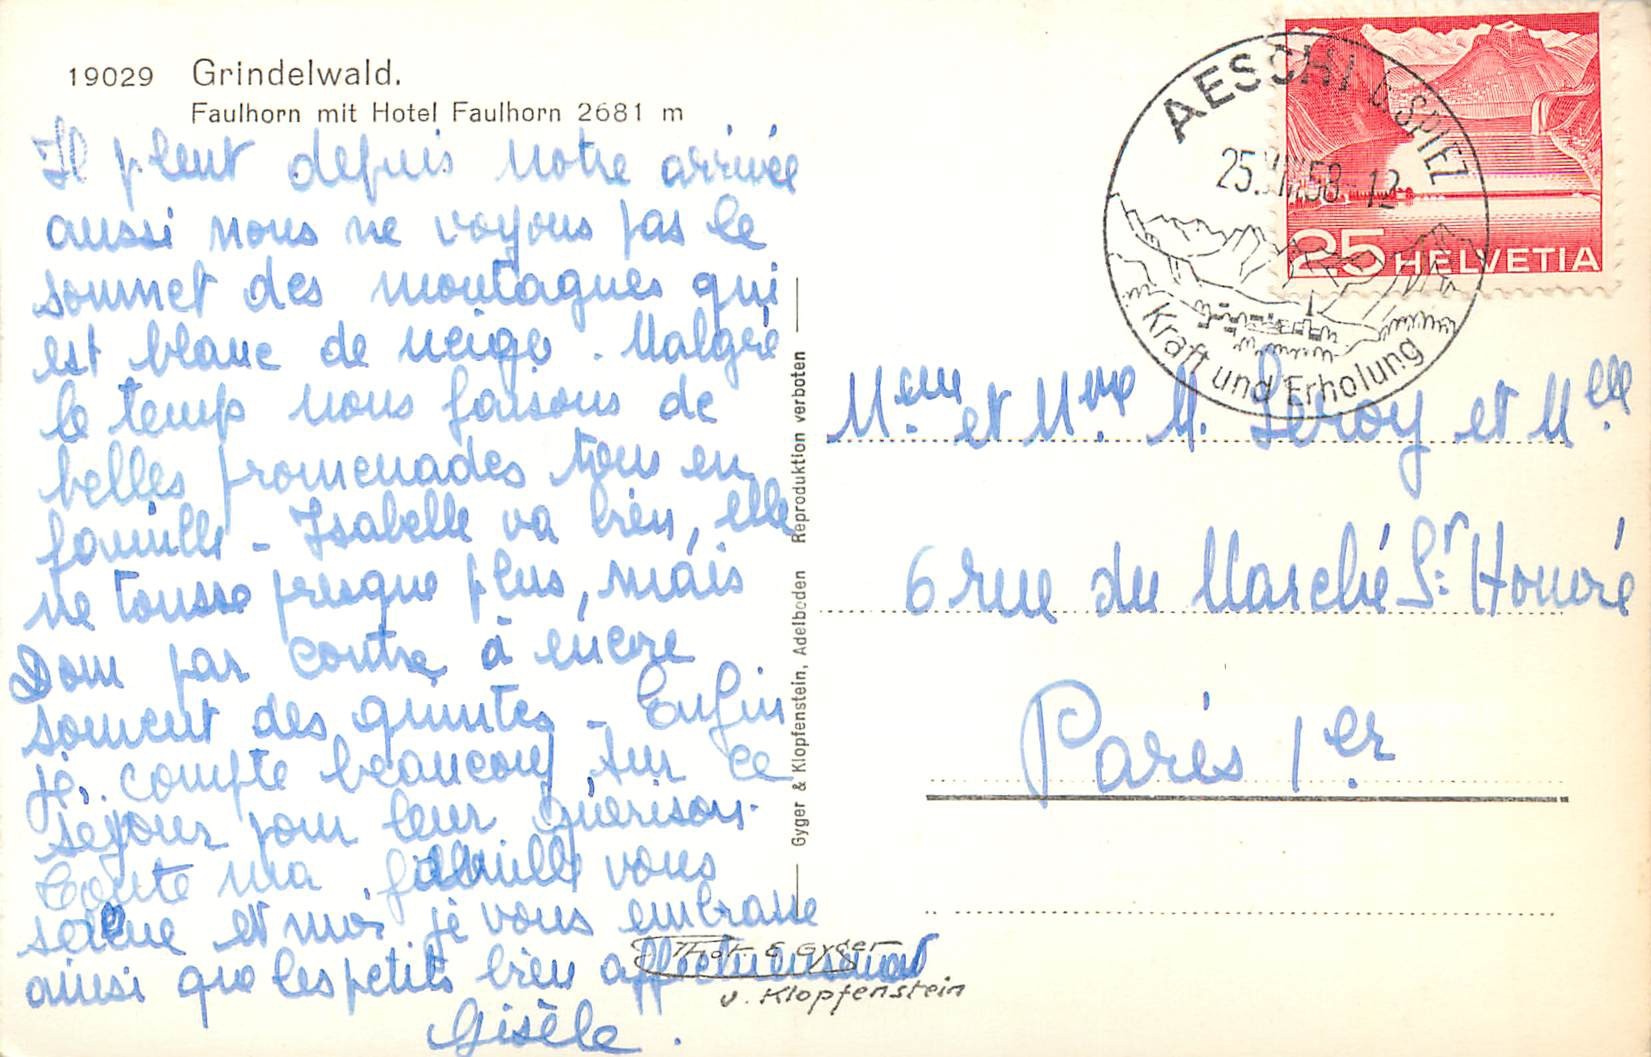 19029 Grindelwald.
Faulhorn mit Hotel Faulhorn 2681 m
Il pleut depuis notre arrivée
aussi nous ne voyons pas le
sommet des montagnes qui
est blanc de neige. Malgré
le temps nous faisons de
belles promenades tous en
famille - Isabelle va bien, elle
ne tousse presque plus, mais
Dom par contre à encore
souvent des quintes - Enfin
je compte beaucoup sur ce
séjour pour leur guérison.
Toute ma famille vous
serre et moi je vous embrasse
ainsi que les petits bien affectueusement
Gisèle.
Gyger & Klopfenstein, Adelboden Reproduktion verboten
Phot. E. Gyger
v. Klopfenstein
AESCHI b. SPIEZ
25. 58-12
Kraft und Erholung
25 HELVETIA
et Mme M. Leroy et Melle
6 rue du Marché St. Honoré
Paris 1er